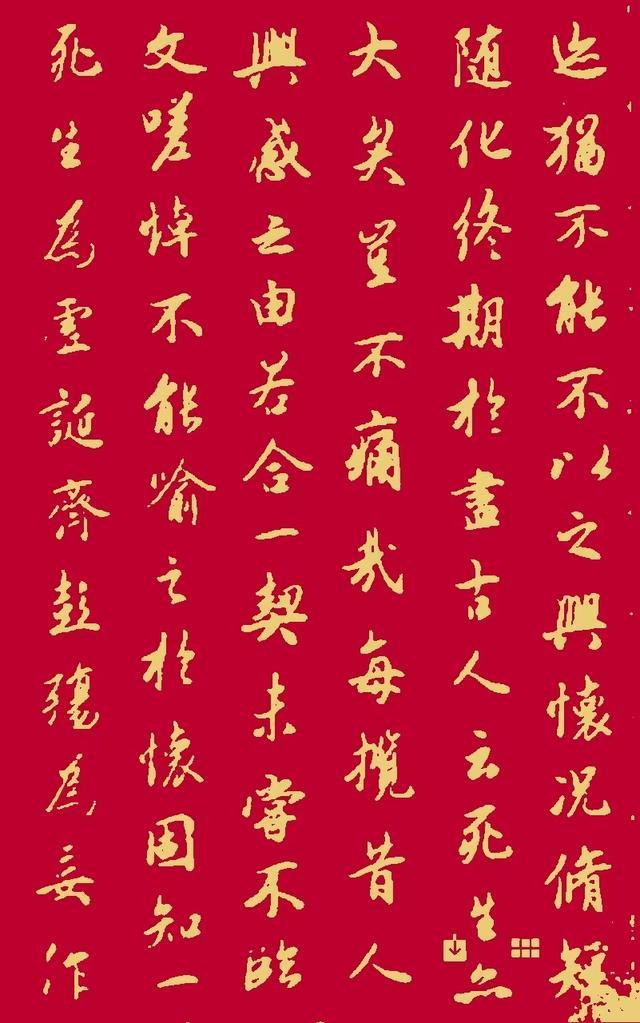 迹猶不能不以之興懷況脩短
随化終期於盡古人云死生亦
大矣豈不痛哉每攬昔人
興感之由若合一契未嘗不臨
文嗟悼不能喻之於懷固知一
死生為虛誕齊彭殤為妄作